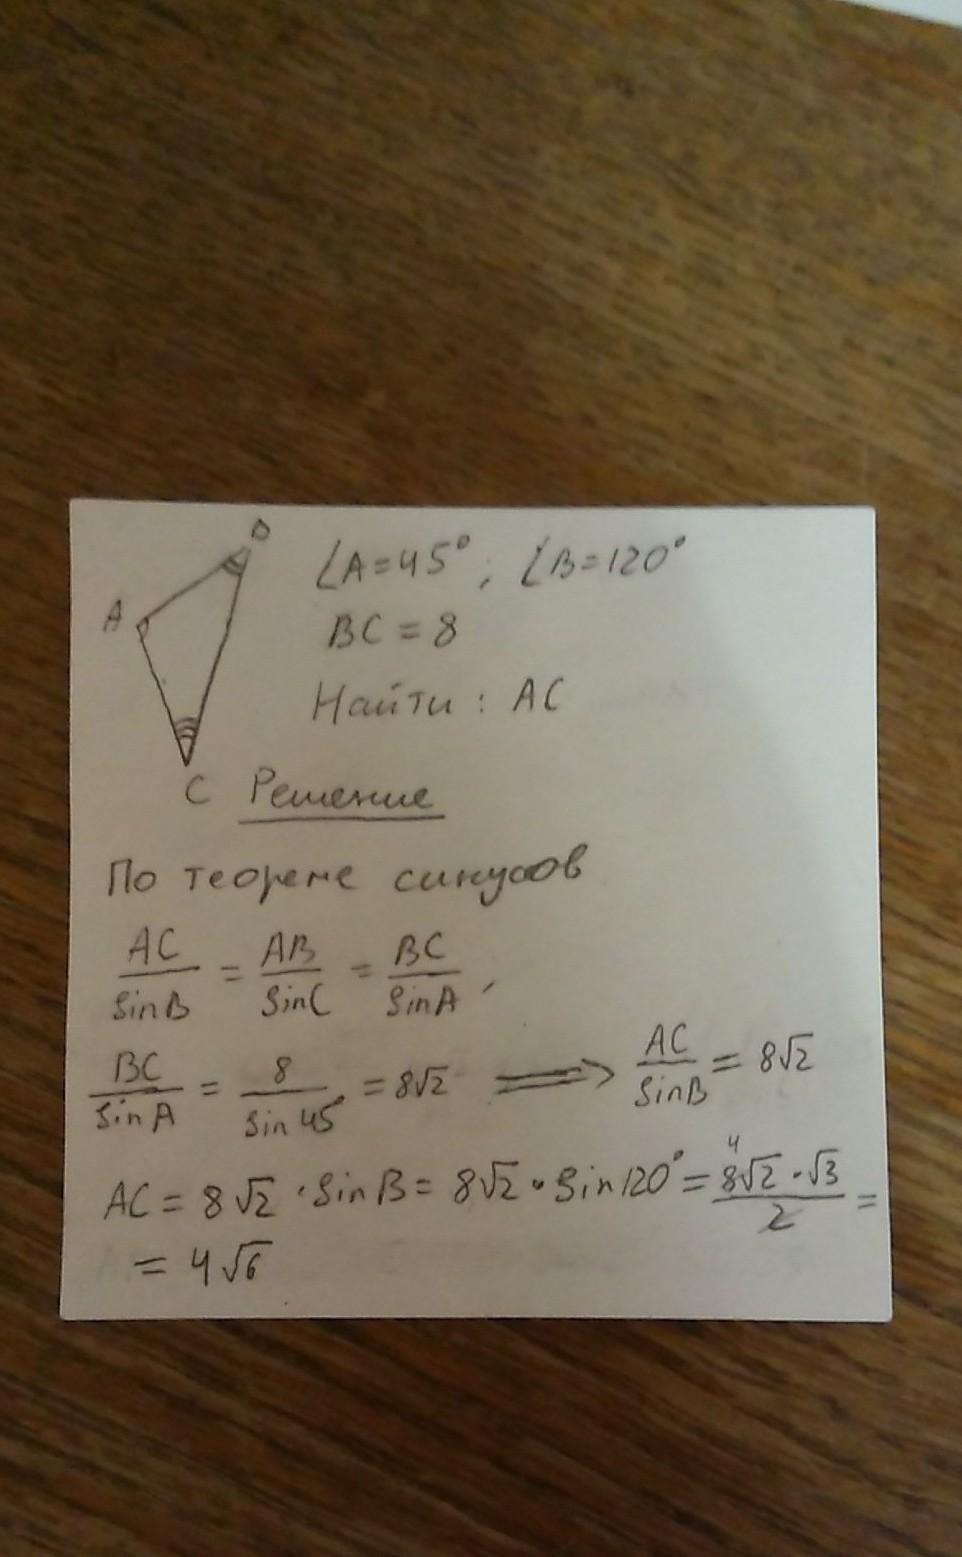 B
∠A=45°; ∠B=120°
A
BC = 8
Найти: AC
C Решение
По теореме синусов
AC/sinB = AB/sinC = BC/sinA,
BC/sinA = 8/sin45° = 8√2 ⟹ AC/sinB = 8√2
AC = 8√2 · sinB = 8√2 · sin120° = 4 8√2 · √3/2 =
= 4√6